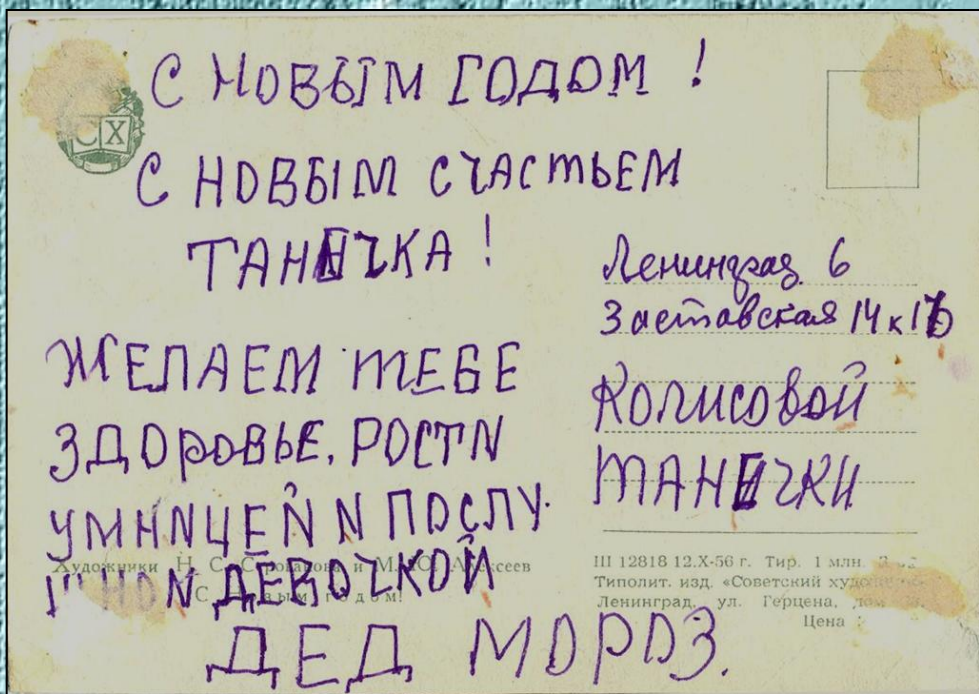 С НОВЫМ ГОДОМ !
СХ
С НОВЫМ СЧАСТЬЕМ
ТАНЕЧКА !
ЖЕЛАЕМ ТЕБЕ
ЗДОРОВЬЕ, РОСТИ
УМНИЦЕЙ И ПОСЛУ-
ШНОЙ ДЕВОЧКОЙ
ДЕД МОРОЗ.
Ленинград 6
Заставская 14 к
ТАНЕЧКИ
Художники Н. С. Строганова и М. О. Алексеев
С Новым годом!
III 12818 12.X-56 г. Тир. 1 млн.
Типолит. изд. «Советский
Ленинград, ул. Герцена,
Цена